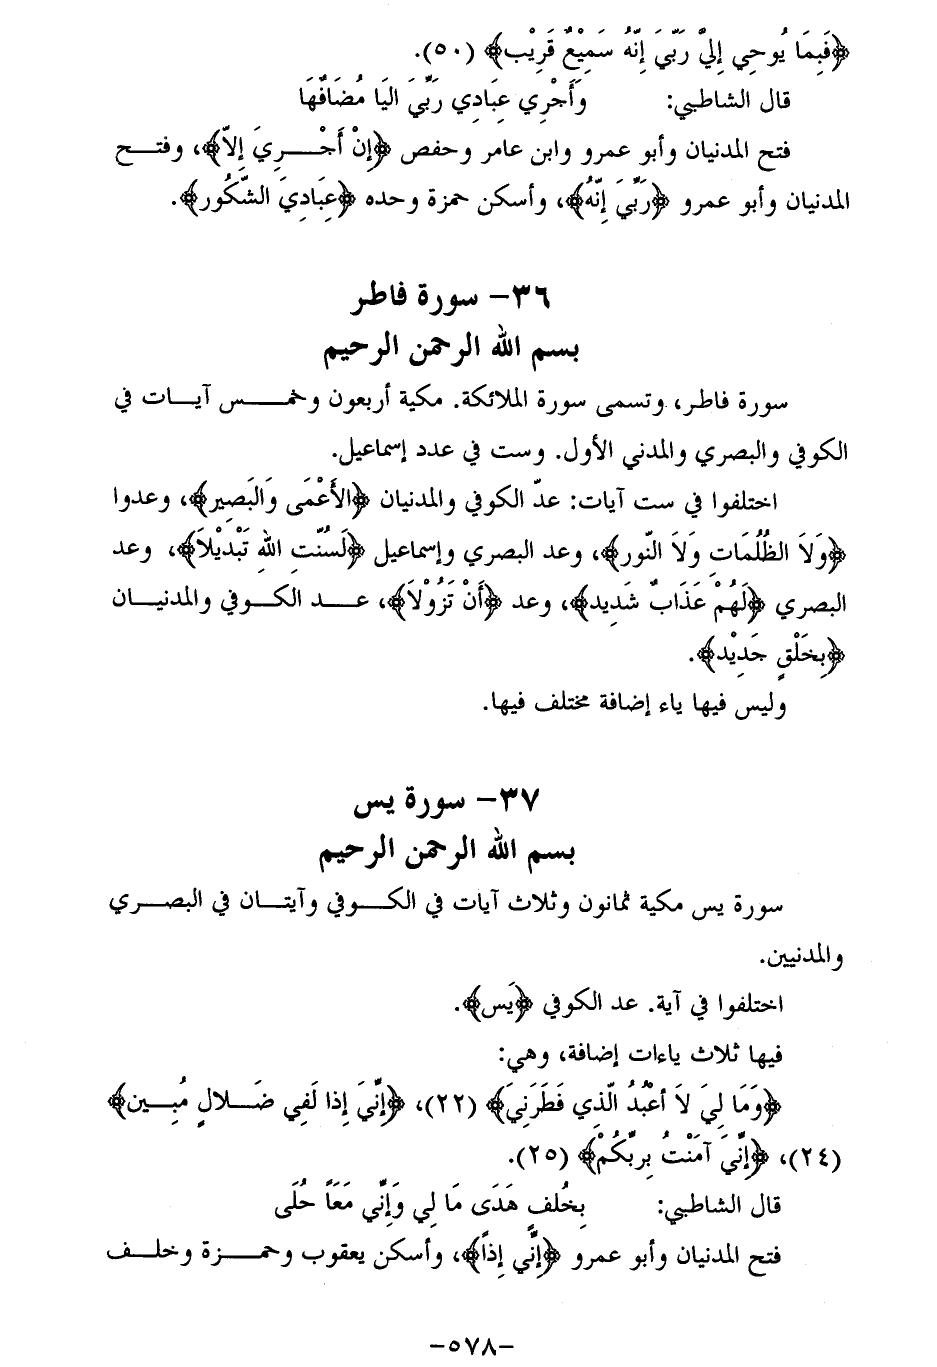 ﴿فَبِمَا يُوحِي إِلَيَّ رَبِّيَ إِنَّهُ سَمِيْعٌ قَرِيْب﴾ (٥٠).
قال الشاطبي: وَأَجْرِي عِبَادِي رَبِّيَ اليَا مُضَافُهَا
فتح المدنيان وأبو عمرو وابن عامر وحفص ﴿إِنْ أَجْـــرِيَ إِلاّ﴾، وفتـــح
المدنيان وأبو عمرو ﴿رَبِّيَ إِنَّهُ﴾، وأسكن حمزة وحده ﴿عِبَادِيَ الشَّكُور﴾.
٣٦- سورة فاطر
بسم الله الرحمن الرحيم
سورة فاطر، وتسمى سورة الملائكة. مكية أربعون وخمـــس آيـــات في
الكوفي والبصري والمدني الأول. وست في عدد إسماعيل.
اختلفوا في ست آيات: عدّ الكوفي والمدنيان ﴿الأَعْمَى وَالبَصِير﴾، وعدوا
﴿وَلاَ الظُلُمَاتِ وَلاَ النّور﴾، وعد البصري وإسماعيل ﴿لَسُنّتِ اللهِ تَبْدِيْلاَ﴾، وعد
البصري ﴿لَهُمْ عَذَابٌ شَدِيد﴾، وعد ﴿أَنْ تَزُوْلاَ﴾، عـــد الكـــوفي والمدنيـــان
﴿بِخَلْقٍ جَدِيْد﴾.
وليس فيها ياء إضافة مختلف فيها.
٣٧- سورة يس
بسم الله الرحمن الرحيم
سورة يس مكية ثمانون وثلاث آيات في الكـــوفي وآيتـــان في البصـــري
والمدنيين.
اختلفوا في آية. عد الكوفي ﴿يَس﴾.
فيها ثلاث ياءات إضافة، وهي:
﴿وَمَا لِيَ لاَ أَعْبُدُ الّذِي فَطَرَنِيَ﴾ (٢٢)، ﴿إِنِّيَ إِذا لَفِي ضَـــلالٍ مُبِـــين﴾
(٢٤)، ﴿إِنِّيَ آمَنْتُ بِرَبِّكُمْ﴾ (٢٥).
قال الشاطبي: بِخُلفٍ هَدَى مَا لِي وَإِنِّي مَعَاً حُلَى
فتح المدنيان وأبو عمرو ﴿إِنِّي إِذاً﴾، وأسكن يعقوب وحمـــزة وخلـــف
-٥٧٨-